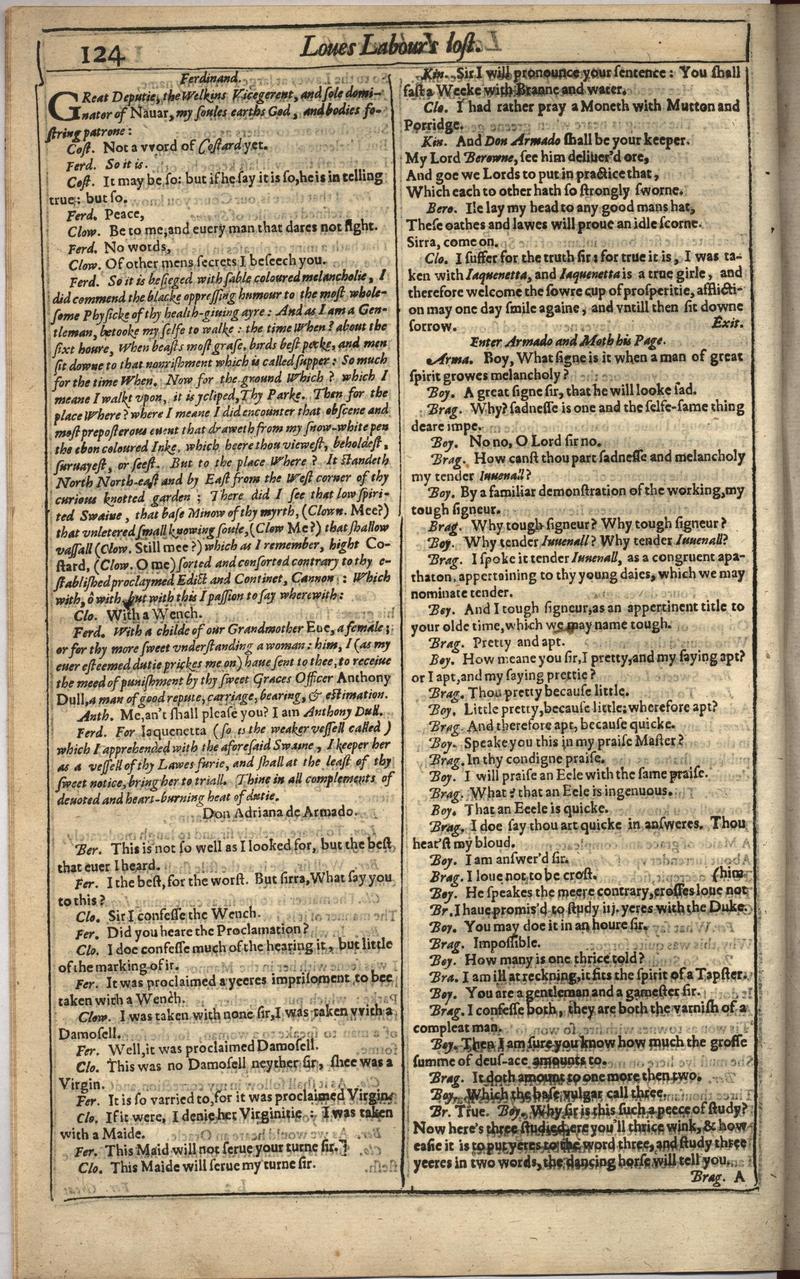 124
Loues Labour's lost.
Ferdinand.
GReat Deputie, the Welkins Vicegerent, and sole domi-
nator of Nauar, my soules earths God, and bodies fo-
string patrone:
Cost. Not a vvord of Costard yet.
Ferd. So it is.
Cost. It may be so: but if he say it is so, he is in telling
true: but so.
Ferd. Peace,
Clow. Be to me, and euery man that dares not fight.
Ferd. No words,
Clow. Of other mens secrets I beseech you.
Ferd. So it is besieged with sable coloured melancholie, I
did commend the blacke oppressing humour to the most whole-
some Physicke of thy health-giuing ayre: And as I am a Gen-
tleman, betooke my selfe to walke: the time When? about the
sixt houre, When beasts most grase, birds best pecke, and men
sit downe to that nourishment which is called supper: So much
for the time When. Now for the ground Which? which I
meane I walkt vpon, it is ycliped, Thy Parke. Then for the
place Where? where I meane I did encounter that obscene and
most preposterous euent that draweth from my snow-white pen
the ebon coloured Inke, which heere thou viewest, beholdest,
suruayest, or seest. But to the place Where? It standeth
North North-east and by East from the West corner of thy
curious knotted garden; There did I see that low spiri-
ted Swaine, that base Minow of thy myrth, (Clown. Mee?)
that vnletered small knowing soule, (Clow Me?) that shallow
vassall (Clow. Still mee?) which as I remember, hight Co-
stard, (Clow. O me) sorted and consorted contrary to thy e-
stablished proclaymed Edict and Continet, Cannon: Which
with, ô with, but with this I passion to say wherewith:
Clo. With a Wench.
Ferd. With a childe of our Grandmother Eue, a female;
or for thy more sweet vnderstanding a woman: him, I (as my
euer esteemed dutie prickes me on) haue sent to thee, to receiue
the meed of punishment by thy sweet Graces Officer Anthony
Dull, a man of good repute, carriage, bearing, & estimation.
Anth. Me, an't shall please you? I am Anthony Dull.
Ferd. For Iaquenetta (so is the weaker vessell called)
which I apprehended with the aforesaid Swaine, I keeper her
as a vessell of thy Lawes furie, and shall at the least of thy
sweet notice, bring her to triall. Thine in all complements of
deuoted and heart-burning heat of dutie.
Don Adriana de Armado.
Ber. This is not so well as I looked for, but the best
that euer I heard.
Fer. I the best, for the worst. But sirra, What say you
to this?
Clo. Sir I confesse the Wench.
Fer. Did you heare the Proclamation?
Clo. I doe confesse much of the hearing it, but little
of the marking of it.
Fer. It was proclaimed a yeeres imprisoment to bee
taken with a Wench.
Clow. I was taken with none sir, I was taken vvith a
Damosell.
Fer. Well, it was proclaimed Damosell.
Clo. This was no Damosell neyther sir, shee was a
Virgin.
Fer. It is so varried to, for it was proclaimed Virgin.
Clo. If it were, I denie her Virginitie: I was taken
with a Maide.
Fer. This Maid will not serue your turne sir.
Clo. This Maide will serue my turne sir.
Kin. Sir I will pronounce your sentence: You shall
fast a Weeke with Branne and water.
Clo. I had rather pray a Moneth with Mutton and
Porridge.
Kin. And Don Armado shall be your keeper.
My Lord Berowne, see him deliuer'd ore,
And goe we Lords to put in practice that,
Which each to other hath so strongly sworne.
Bero. Ile lay my head to any good mans hat,
These oathes and lawes will proue an idle scorne.
Sirra, come on.
Clo. I suffer for the truth sir: for true it is, I was ta-
ken with Iaquenetta, and Iaquenetta is a true girle, and
therefore welcome the sowre cup of prosperitie, afflicti-
on may one day smile againe, and vntill then sit downe
sorrow. Exit.
Enter Armado and Moth his Page.
Arma. Boy, What signe is it when a man of great
spirit growes melancholy?
Boy. A great signe sir, that he will looke sad.
Brag. Why? sadnesse is one and the selfe-same thing
deare impe.
Boy. No no, O Lord sir no.
Brag. How canst thou part sadnesse and melancholy
my tender Iuuenall?
Boy. By a familiar demonstration of the working, my
tough signeur.
Brag. Why tough signeur? Why tough signeur?
Boy. Why tender Iuuenall? Why tender Iuuenall?
Brag. I spoke it tender Iuuenall, as a congruent apa-
thaton, appertaining to thy young daies, which we may
nominate tender.
Boy. And I tough signeur, as an appertinent title to
your olde time, which we may name tough.
Brag. Pretty and apt.
Boy. How meane you sir, I pretty, and my saying apt?
or I apt, and my saying prettie?
Brag. Thou pretty because little.
Boy. Little pretty, because little: wherefore apt?
Brag. And therefore apt, because quicke.
Boy. Speake you this in my praise Master?
Brag. In thy condigne praise.
Boy. I will praise an Eele with the same praise.
Brag. What? that an Eele is ingenuous.
Boy. That an Eeele is quicke.
Brag. I doe say thou art quicke in answeres. Thou
heat'st my bloud.
Boy. I am answer'd sir.
Brag. I loue not to be crost. (him.
Boy. He speakes the meere contrary, crosses loue not
Br. I haue promis'd to study iij. yeres with the Duke.
Boy. You may doe it in an houre sir.
Brag. Impossible.
Boy. How many is one thrice told?
Bra. I am ill at reckning, it fits the spirit of a Tapster.
Boy. You are a gentleman and a gamester sir.
Brag. I confesse both, they are both the varnish of a
compleat man.
Boy. Then I am sure you know how much the grosse
summe of deus-ace amounts to.
Brag. It doth amount to one more then two.
Boy. Which the base vulgar call three.
Br. True. Boy. Why sir is this such a peece of study?
Now here's three studied, ere you'll thrice wink, & how
easie it is to put yeres to the word three, and study three
yeeres in two words, the dancing horse will tell you.
Brag. A